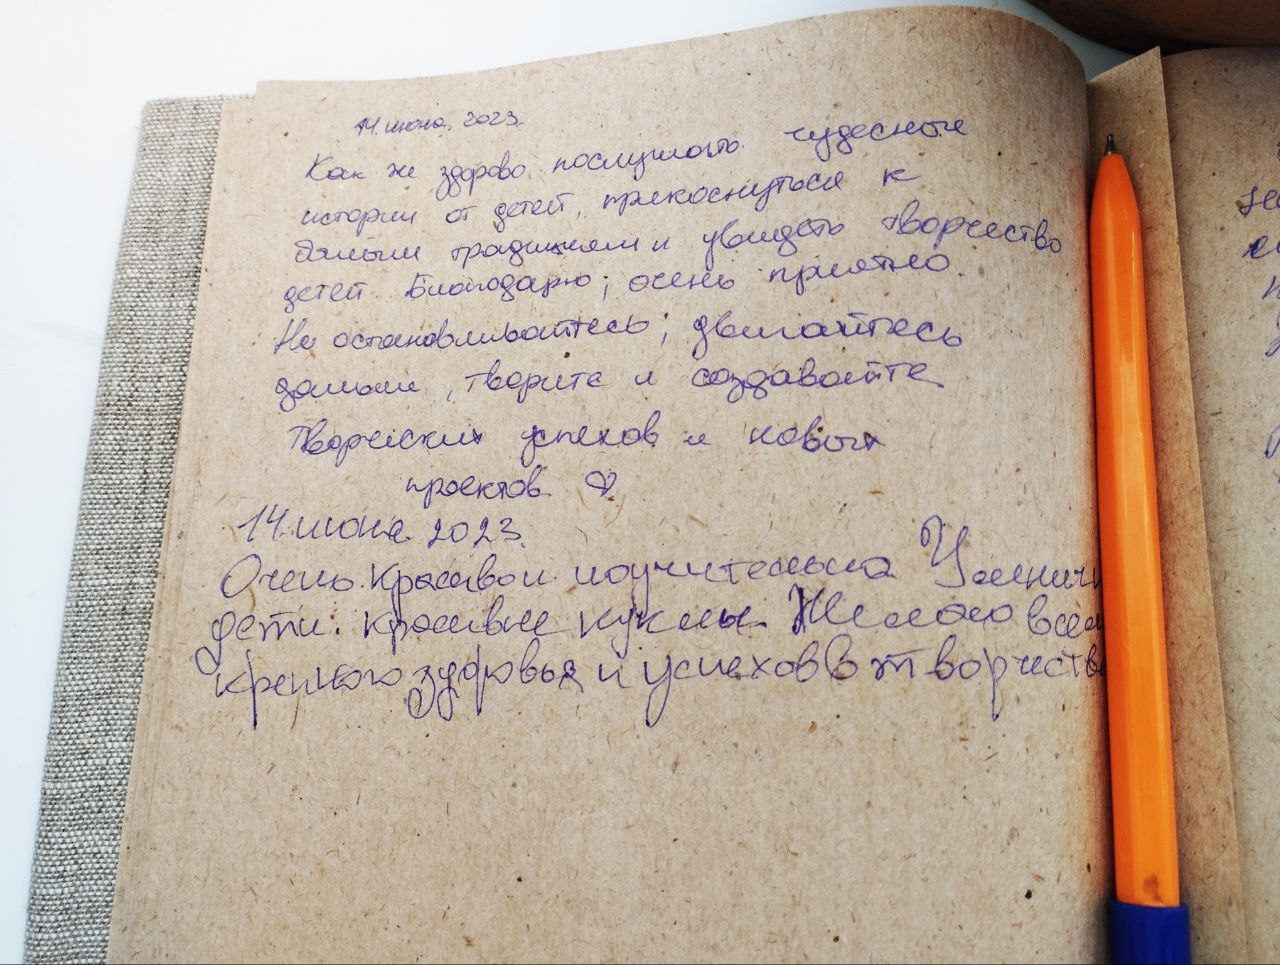 14 июня 2023.
Как же здорово послушать чудесные
истории от детей, прикоснуться к
традициям и увидеть творчество
детей. Благодарю, очень приятно.
Не останавливайтесь, двигайтесь
дальше, творите и создавайте
Творческих успехов и новых
проектов ♡
14 июня 2023.
Очень красиво и поучительно
дети. красивые куклы. Желаю всем
крепкого здоровья и успехов в творчестве